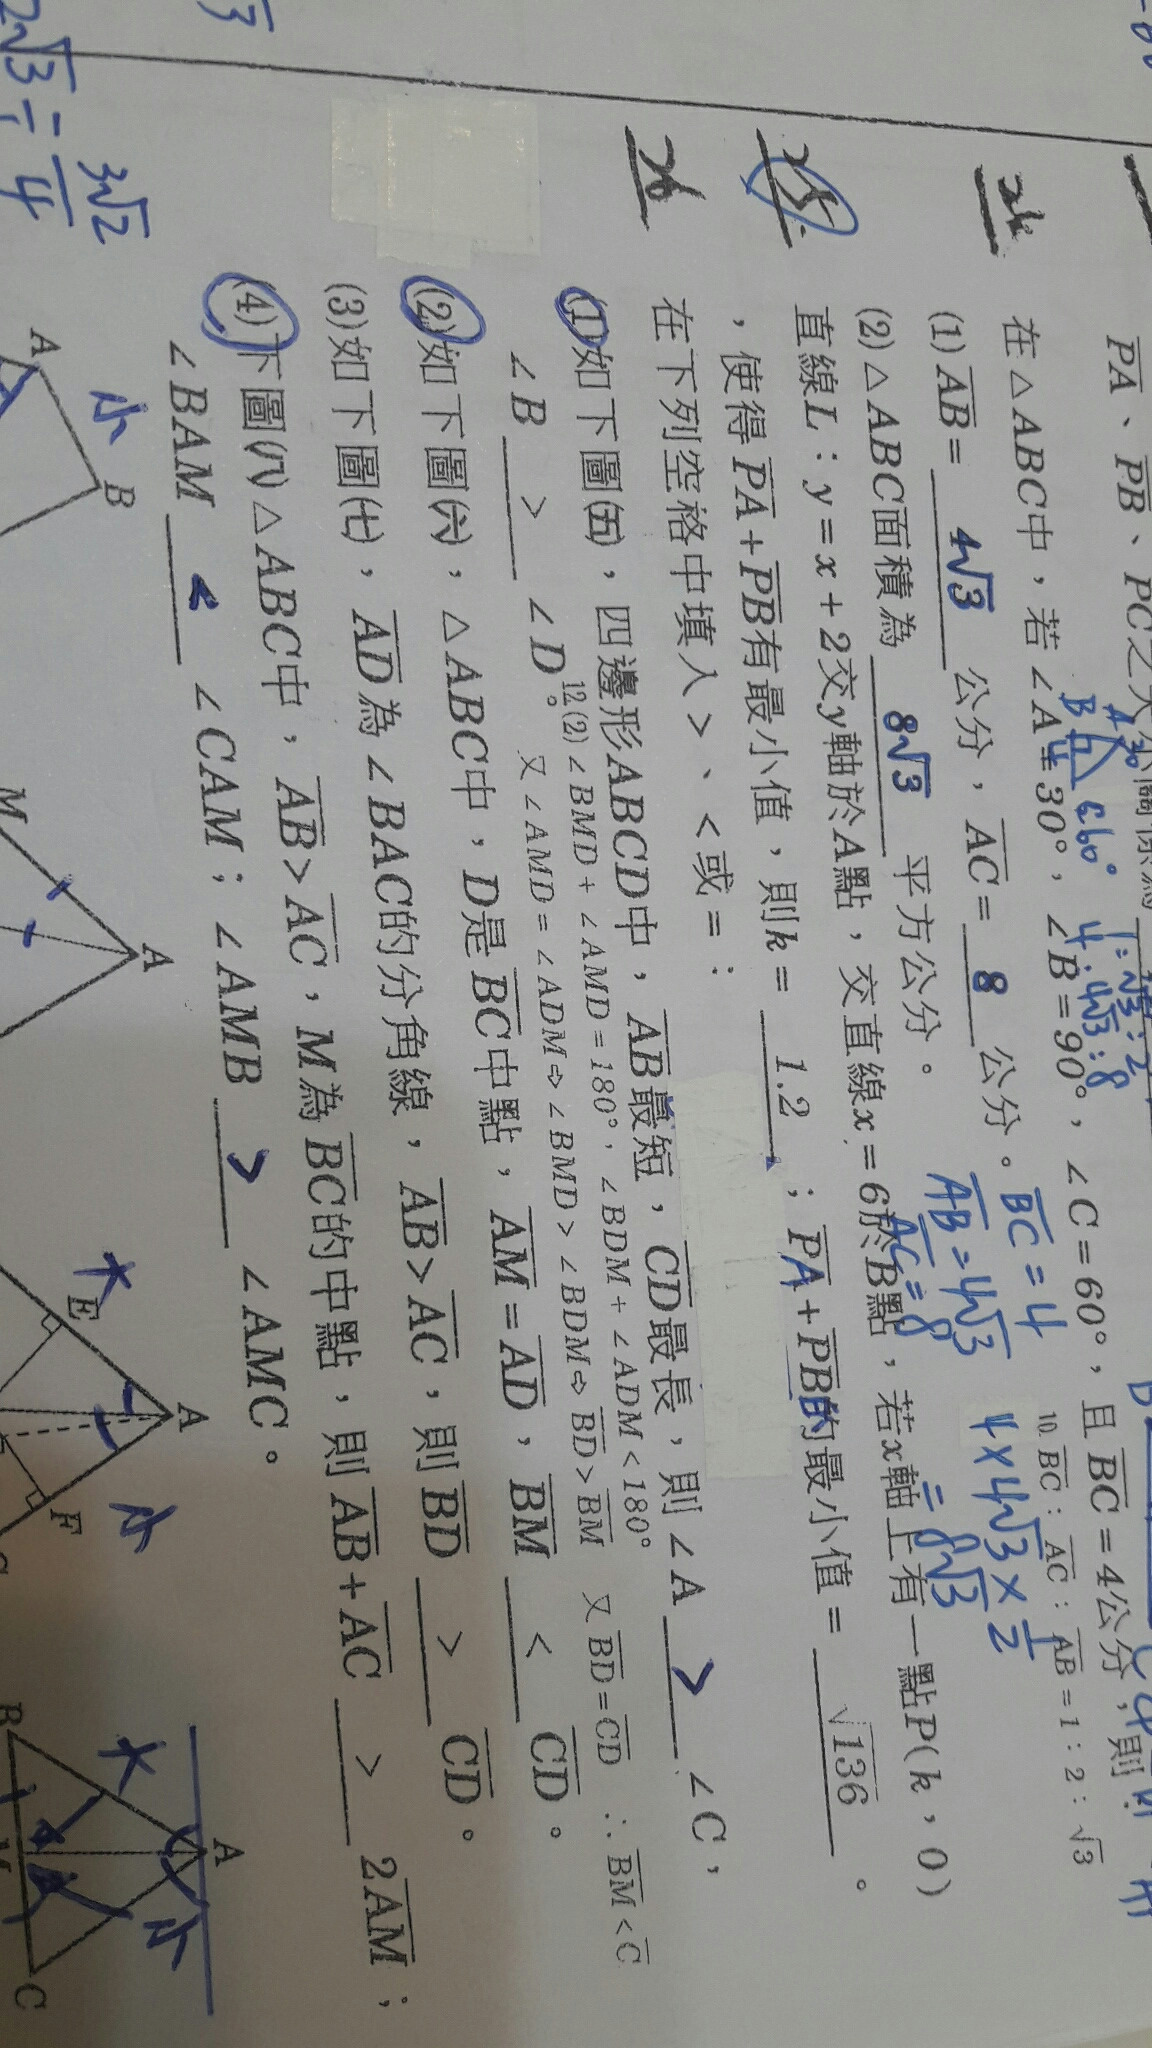 PA、PB、PC之大小關係為
24
在△ABC中，若∠A=30°，∠B=90°，∠C=60°，且BC=4公分，則
(1) AB= 4√3 公分，AC= 8 公分。
(2) △ABC面積為 8√3 平方公分。
A 30
B
C 60°
1:√3:2
4:4√3:8
BC=4
AB=4√3
AC=8
4×4√3×1/2
=8√3
10. BC：AC：AB=1：2：√3
25
直線L：y=x+2交y軸於A點，交直線x=6於B點，若x軸上有一點P(k，0)
，使得PA+PB有最小值，則k= 1.2 ；PA+PB的最小值= √136 。
26
在下列空格中填入>、<或=：
(1)如下圖(五)，四邊形ABCD中，AB最短，CD最長，則∠A > ∠C，
∠B > ∠D。
12(2) ∠BMD+∠AMD=180°，∠BDM+∠ADM<180°
又∠AMD=∠ADM⇨∠BMD>∠BDM⇨BD>BM 又BD=CD ∴BM<C
(2)如下圖(六)，△ABC中，D是BC中點，AM=AD，BM < CD。
(3)如下圖(七)，AD為∠BAC的分角線，AB>AC，則BD > CD。
(4)下圖(八)△ABC中，AB>AC，M為BC的中點，則AB+AC > 2AM；
∠BAM < ∠CAM；∠AMB > ∠AMC。
A
小
B
M
A
大
E
A
小
F
B
大
M
A
小
C
3√2
2√3=
4